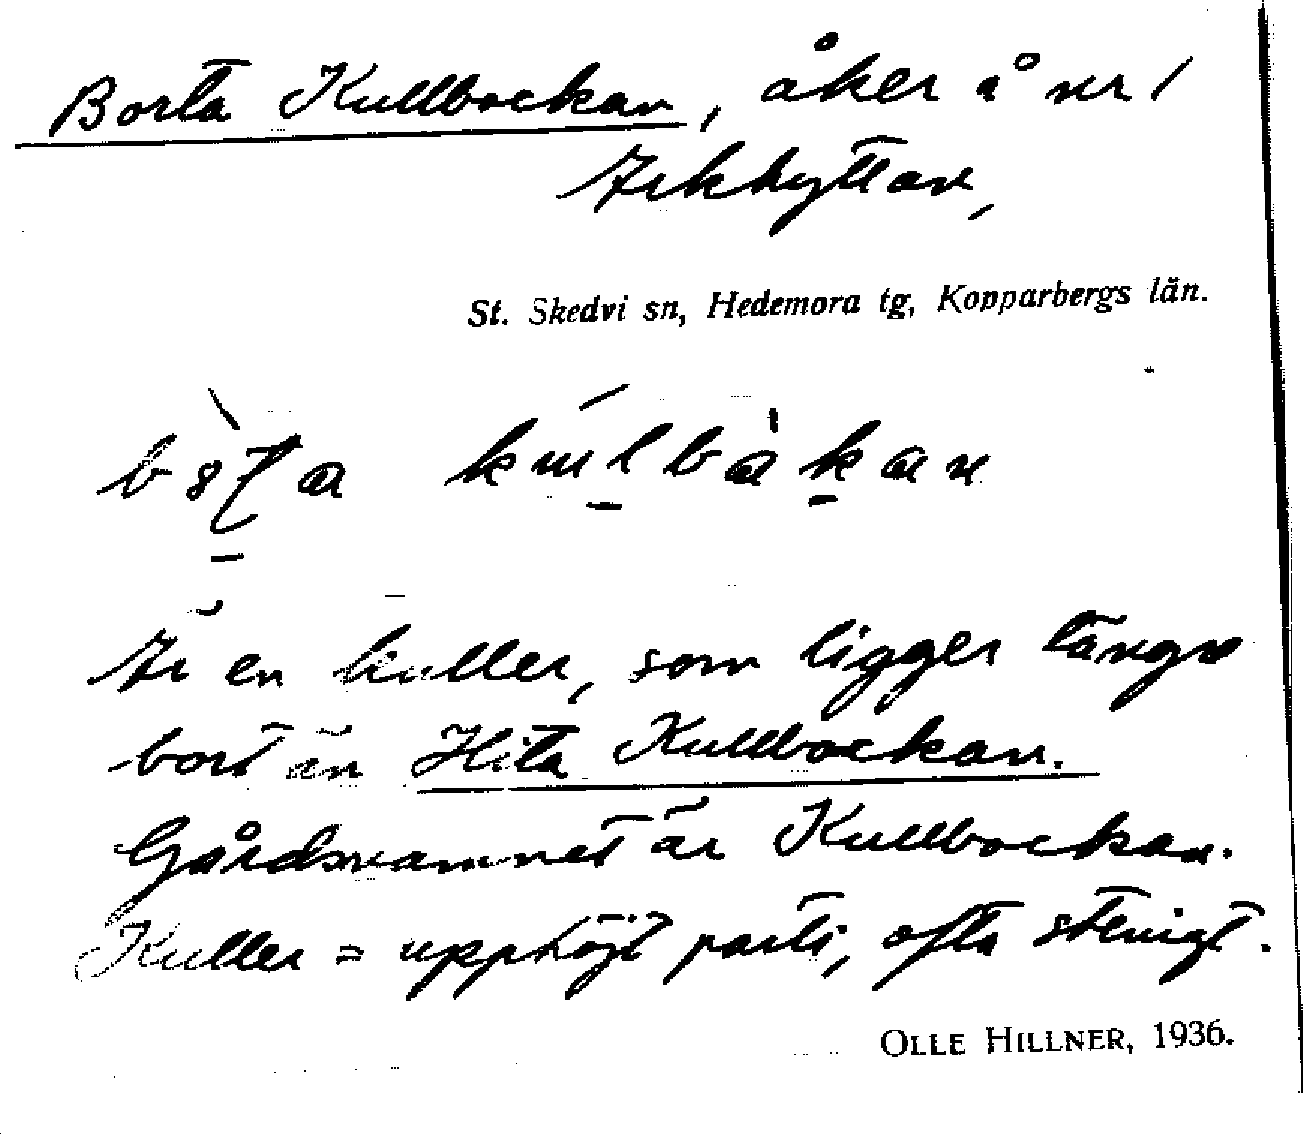 Borta Kullbockan, åker å nr 1
Arkhyttan,
St. Skedvi sn, Hedemora tg, Kopparbergs län.
Är en kuller, som ligger längre
bort än Hita Kullbockan.
Gårdsnamnet är Kullbockan.
Kuller = upphöjt parti, ofta stenigt.
OLLE HILLNER, 1936.